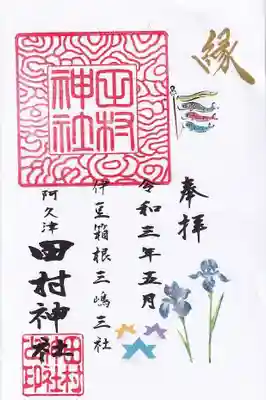 縁
奉拝
令和三年五月
伊豆箱根三嶋三社
阿久津
田村神社
田村神社
田村神社之印